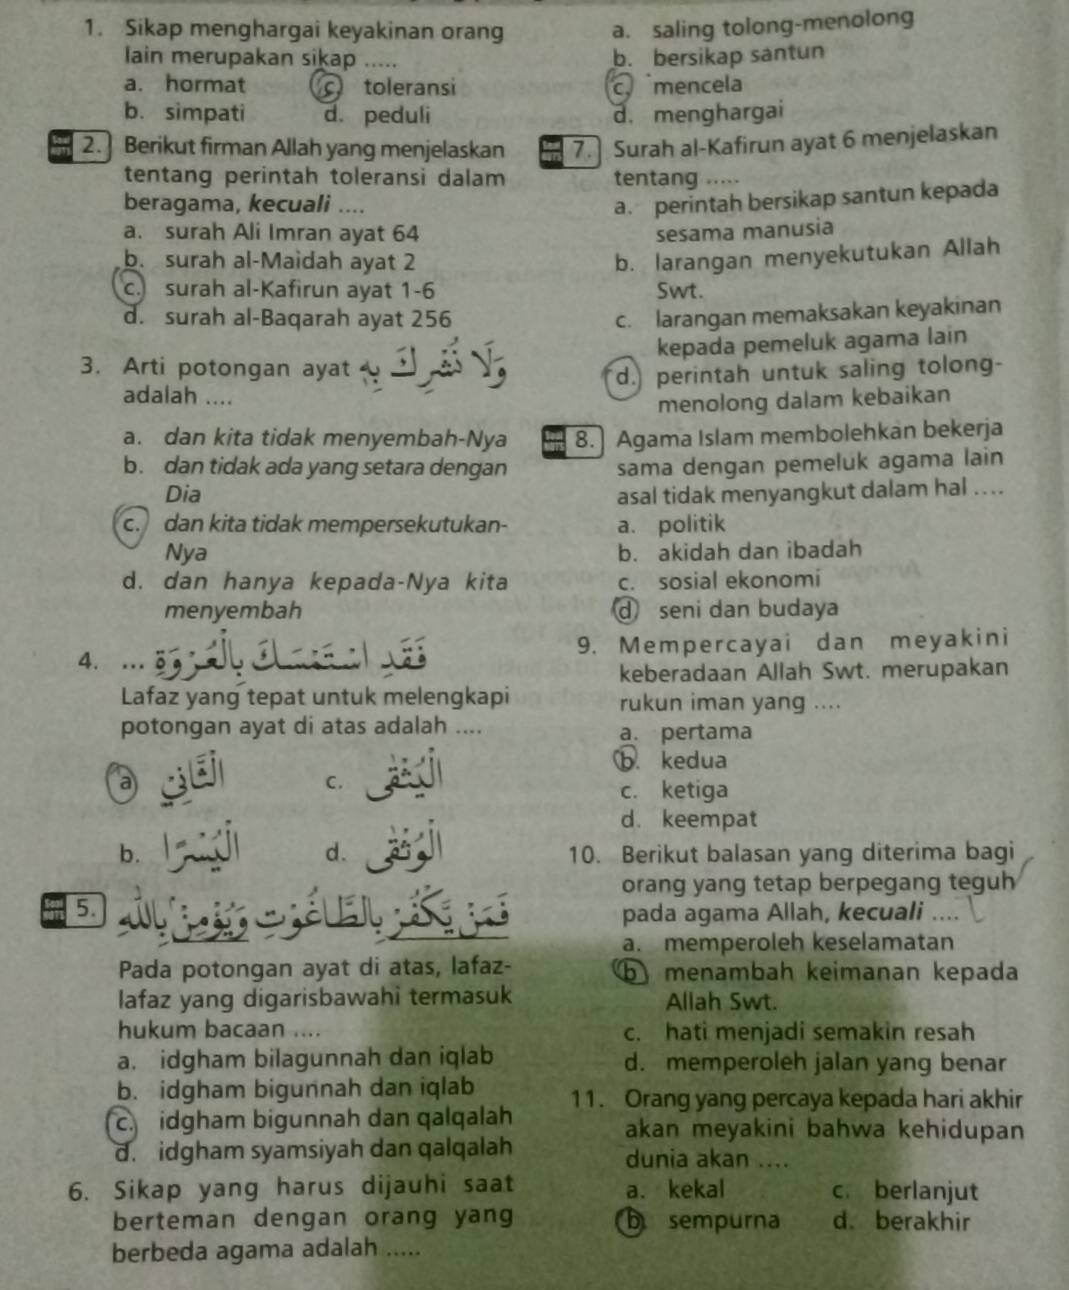 1. Sikap menghargai keyakinan orang
lain merupakan sikap .....
a. hormat c. toleransi
b. simpati d. peduli
Soal HOTS 2. Berikut firman Allah yang menjelaskan
tentang perintah toleransi dalam
beragama, kecuali ....
a. surah Ali Imran ayat 64
b. surah al-Maidah ayat 2
c. surah al-Kafirun ayat 1-6
d. surah al-Baqarah ayat 256
3. Arti potongan ayat وَلَا نُشْرِكَ بِهِ
adalah ....
a. dan kita tidak menyembah-Nya
b. dan tidak ada yang setara dengan
Dia
c. dan kita tidak mempersekutukan-
Nya
d. dan hanya kepada-Nya kita
menyembah
4. فَقَدِ اسْتَمْسَكَ بِالْعُرْوَةِ ...
Lafaz yang tepat untuk melengkapi
potongan ayat di atas adalah ....
a. الثَّانِيْ c. الْيُثْقٰى
b. الْيُسْرَا d. الْوُثْقٰى
Soal HOTS 5. فَمَنْ يَّكْفُرْ بِالطَّاغُوْتِ وَيُؤْمِنْۢ بِاللّٰهِ
Pada potongan ayat di atas, lafaz-
lafaz yang digarisbawahi termasuk
hukum bacaan ....
a. idgham bilagunnah dan iqlab
b. idgham bigunnah dan iqlab
c. idgham bigunnah dan qalqalah
d. idgham syamsiyah dan qalqalah
6. Sikap yang harus dijauhi saat
berteman dengan orang yang
berbeda agama adalah .....
a. saling tolong-menolong
b. bersikap santun
c. mencela
d. menghargai
Soal HOTS 7. Surah al-Kafirun ayat 6 menjelaskan
tentang .....
a. perintah bersikap santun kepada
sesama manusia
b. larangan menyekutukan Allah
Swt.
c. larangan memaksakan keyakinan
kepada pemeluk agama lain
d. perintah untuk saling tolong-
menolong dalam kebaikan
Soal HOTS 8. Agama Islam membolehkan bekerja
sama dengan pemeluk agama lain
asal tidak menyangkut dalam hal ....
a. politik
b. akidah dan ibadah
c. sosial ekonomi
d. seni dan budaya
9. Mempercayai dan meyakini
keberadaan Allah Swt. merupakan
rukun iman yang ....
a. pertama
b. kedua
c. ketiga
d. keempat
10. Berikut balasan yang diterima bagi
orang yang tetap berpegang teguh
pada agama Allah, kecuali ....
a. memperoleh keselamatan
b. menambah keimanan kepada
Allah Swt.
c. hati menjadi semakin resah
d. memperoleh jalan yang benar
11. Orang yang percaya kepada hari akhir
akan meyakini bahwa kehidupan
dunia akan ....
a. kekal c. berlanjut
b. sempurna d. berakhir